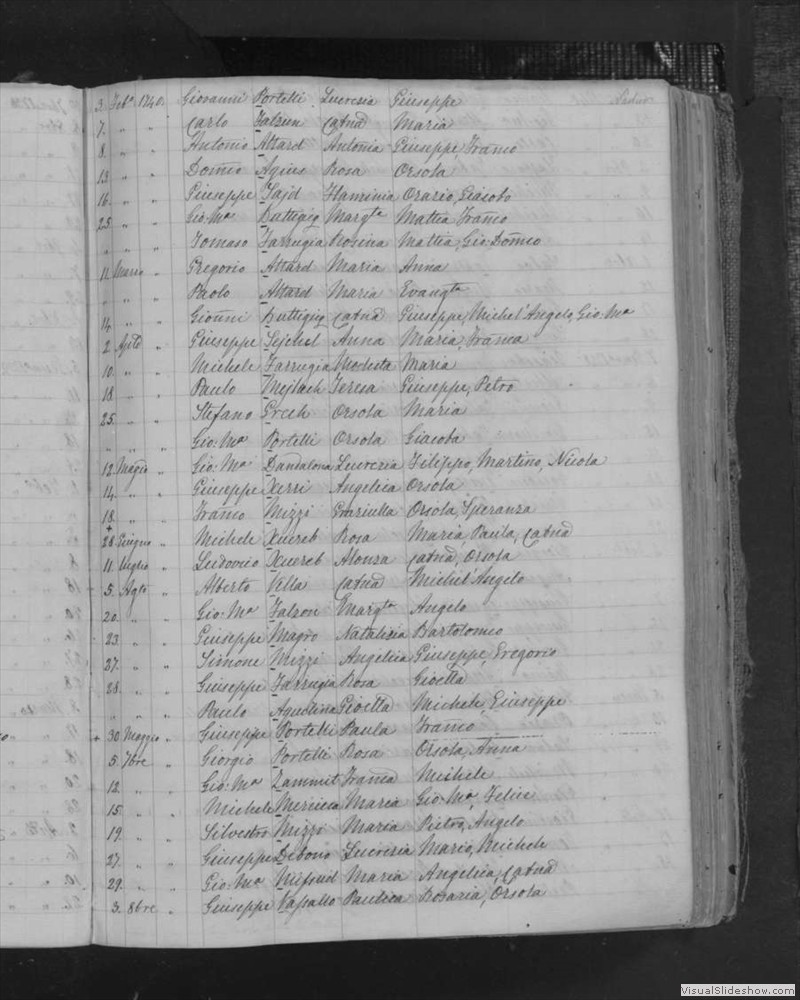 3. Feb.º 1740. Giovanni Portelli Lucresia Giuseppe
7. " " Carlo Falzun Catnª Maria
8. " " Antonio Attard Antonia Giuseppe, Franco
13. " " Domco Agius Rosa Orsola
16. " " Giuseppe Sajd Flaminia Orazio, Giacobo
25. " " Gio: Mª Buttigig Margta Mattia Franco
" " " Tomaso Farrugia Rosina Mattia, Gio: Domco
11. Marzo " Gregorio Attard Maria Anna
" " " Paolo Attard Maria Evangta
14. " " Gionni Buttigig Catnª Giuseppe, Michel'Angelo, Gio: Mª
2. Aple " Giuseppe Sejchel Anna Maria, Franca
10. " " Michele Farrugia Modesta Maria
18 " " Paulo Mejlach Teresa Giuseppe, Petro
25. " " Stefano Grech Orsola Maria
" " " Gio: Mª Portelli Orsola Giacoba
12. Maggio " Gio: Mª Dandalona Lucrezia Filippo, Martino, Nicola
14. " " Giuseppe Xerri Angelica Orsola
18. " " Franco Mizzi Graziulla Orsola, Speranza
+ 28 Giugno " Michele Xuereb Rosa Maria Paula, Catnª
11. Luglio " Ludovico Xuereb Alonza Catnª, Orsola
+ 5. Agto " Alberto Vella Catnª Michel'Angelo
20. " " Gio: Mª Falzon Margta Angelo
23. " " Giuseppe Magro Natalizia Bartolomeo
27. " " Simone Mizzi Angelica Giuseppe, Gregorio
28. " " Giuseppe Farrugia Rosa Gioetta
" " " Paulo Agostina Gioetta Michele, Giuseppe
+ 30 Maggio " Giuseppe Portelli Paula Franco
5. 7bre " Giorgio Portelli Rosa Orsola, Anna
12. " " Gio: Mª Zammit Franca Michele
15. " " Michele Mercieca Maria Gio: Mª, Felice
19. " " Silvestro Mizzi Maria Pietro, Angelo
27. " " Giuseppe Debono Lucresia Mario, Michele
29. " " Gio: Mª Mifsud Maria Angelica, Catnª
3. 8bre " Giuseppe Vassallo Paulica Rosaria, Orsola
VisualSlideshow.com